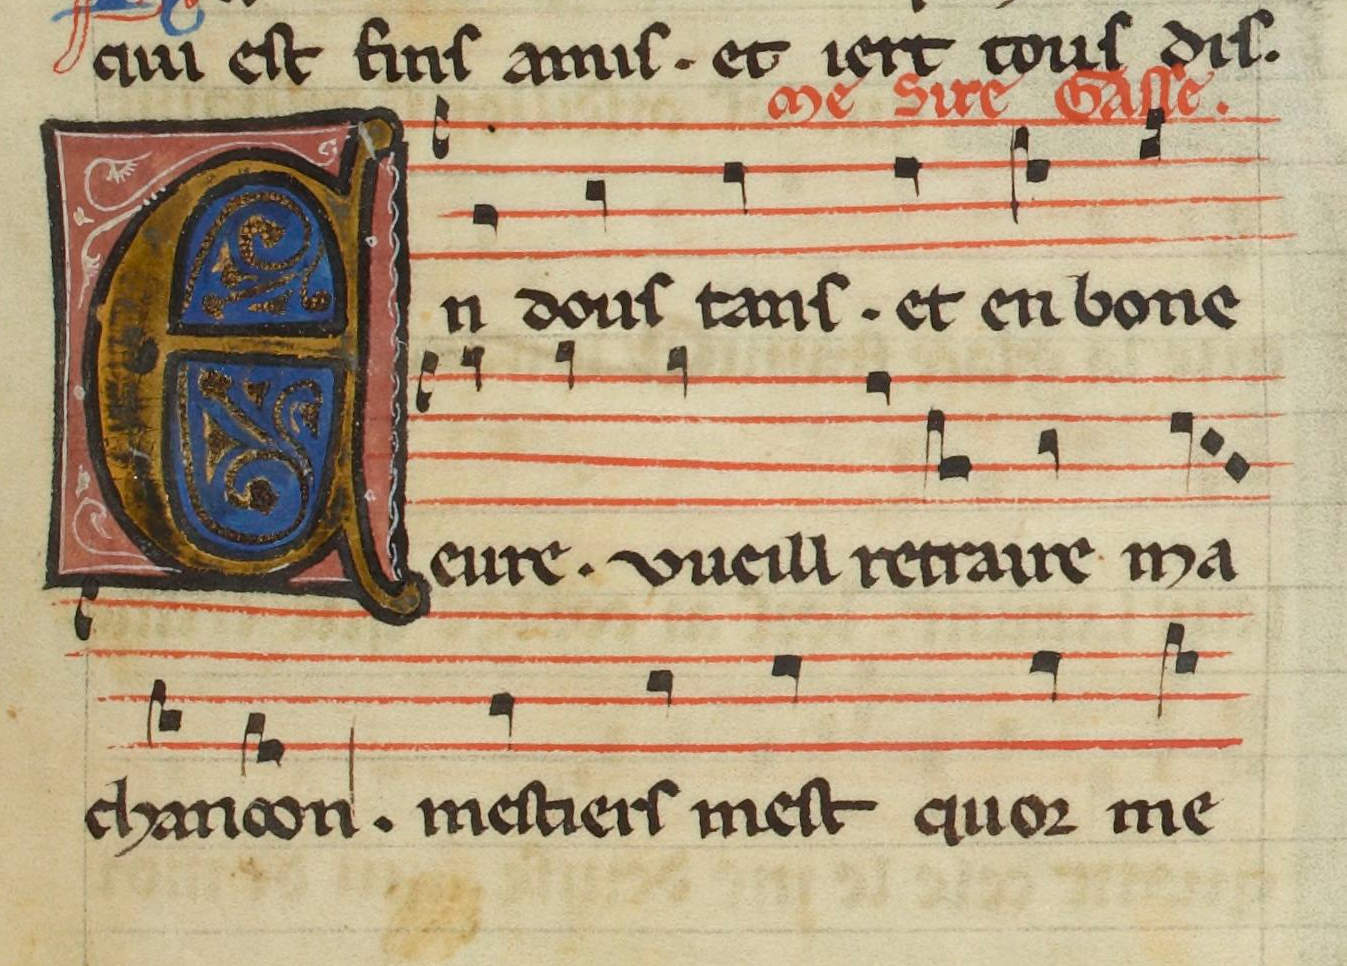 qui est fins amis. et iert tous dis.
me Sire Gasse.
En dous tans. et en bone
eure. vueill retraire ma
chancon. mestiers mest quor me